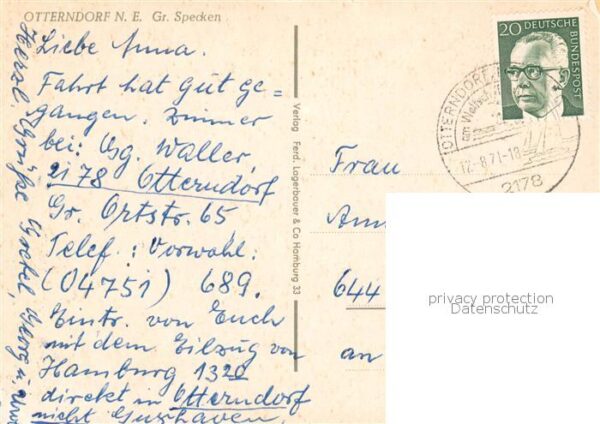 OTTERNDORF N. E. Gr. Specken
Liebe Anna.
Fahrt hat gut ge=
gangen. Zimmer
bei: Gg. Waller
2178 Otterndorf
Gr. Ortstr. 65
Telef.: Vorwahl:
(04751) 689.
Eintr. von Euch
mit dem Eilzug von
Hamburg 1320
direkt in Otterndorf
nicht Cuxhaven,
Herzl. Grüße Gretel, Georg u.
Verlag Ferd. Lagerbauer & Co Hamburg 33
20 DEUTSCHE BUNDESPOST
OTTERNDORF
am
12.-8.71-18
2178
Frau
644
an
privacy protection
Datenschutz